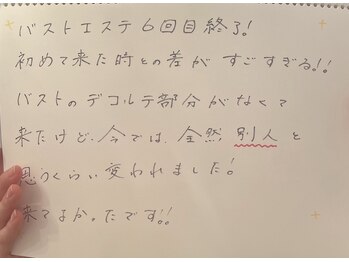 バストエステ6回目終了!
初めて来た時との差がすごすぎる!!
バストのデコルテ部分がなくて
来たけど、今では全然別人と
思うくらい変われました!
来てよかったです!!